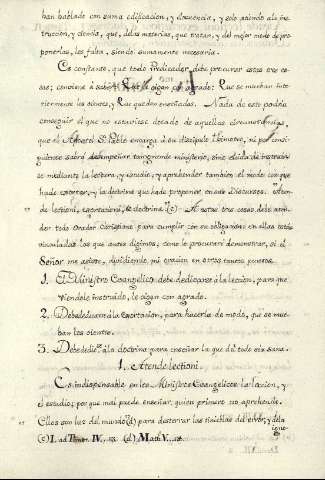 han hablado con suma edificacion, y eloquencia, y solo atiendo a la ins-
truccion, y acierto, que, de las materias, que tratan, y del mejor modo de pro-
ponerlas, les falta, siendo sumamente necesaria.
Es constante, que todo Predicador, debe procurar estas tres co-
sas; conviene à saber: Que le oigan con agrado: Que se muevan inte-
riormente los oientes, y Que queden enseñados. Nada de esto podria
conseguir el que no estuviese dotado de aquellas circunstancias,
que el Apostol S. Pablo encarga à su discipulo Thimoteo, ni por consi-
guiente sabrá desempeñar tan grande ministerio, sino cuida de instruirse
mediante la lectura, y estudio, y aprehender tambien el modo con que
hade exortar, y la doctrina que hade proponer en sus Discursos. Atten-
de lectioni, exortationi, & doctrinæ (c) A estas tres cosas debe aten-
der todo Orador Christiano para cumplir con su obligacion: en ellas están
vinculadas las que antes digimos, como lo procuraré demonstrar, si el
Señor me asiste, dividiendo mi oracion en otros tantos puntos.
1. El Ministro Evangelico debe dedicarse à la leccion, para que
viendole instruido, le oigan con agrado.
2. Debe dedicarse à la exortacion, para hacerla de modo, que se mue-
ban los oientes.
3. Debe dedicarse à la doctrina para enseñar la que del todo sea sana.
1. Atende lectioni.
Es indispensable en los Ministros Evangelicos la leccion, y
el estudio; porque mal puede enseñar, quien primero no aprehende.
Ellos son luz del mundo (d) para desterrar las tinieblas del error, y de la
(c) I. ad Timot. IV., 13. (d) Math. V., 14.